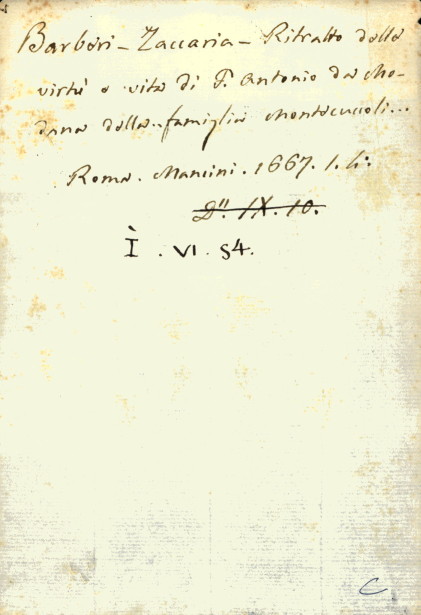 Barberi - Zaccaria - Ritratto delle
virtù e vita di F. Antonio da Mo-
dena della famiglia Montecuccoli...
Roma. Mancini. 1667. 1. 4:
D''. IX. 10.
I . VI . 54.
C